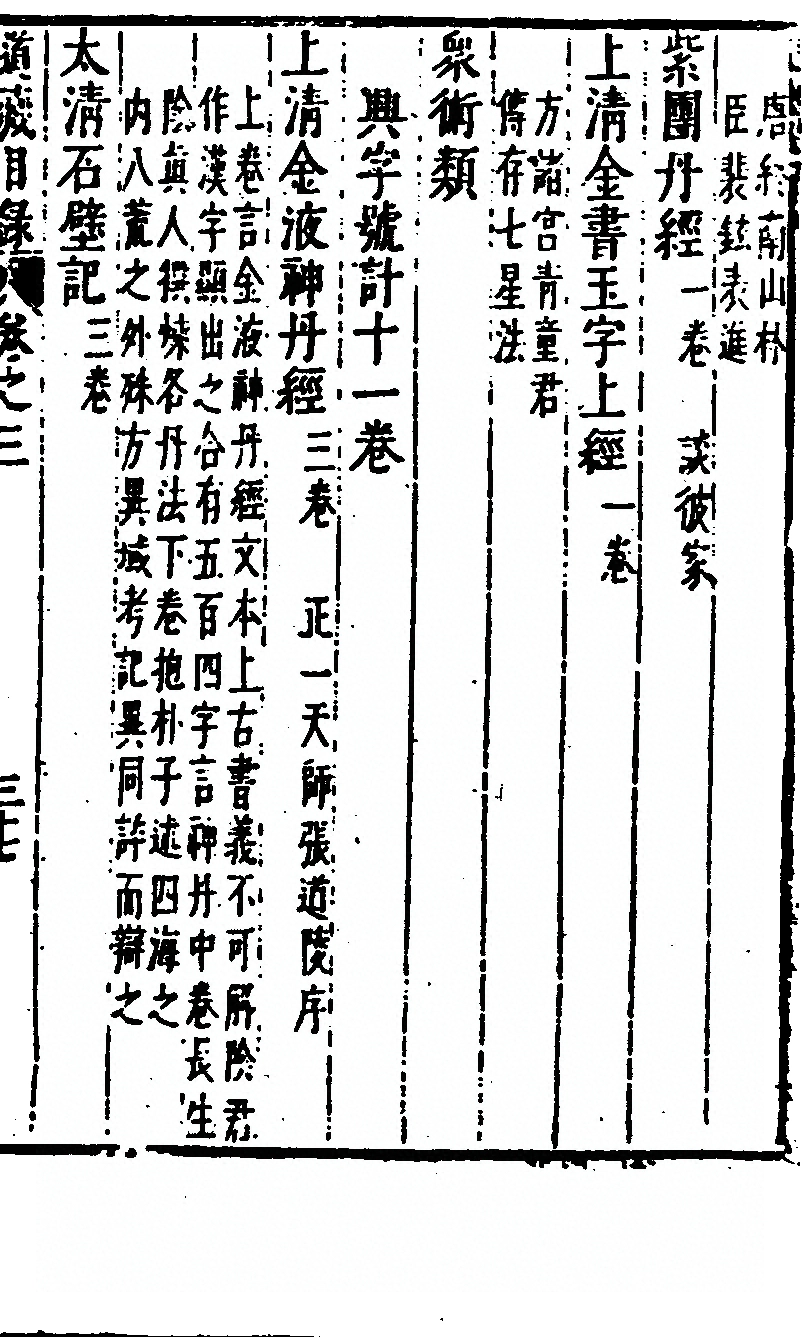 唐終南山朴
臣裴鉉表進
紫團丹經一卷　談彼家
上清金書玉字上經一卷
方諸宮青童君
傳存七星法
眾術類
興字號計十一卷
上清金液神丹經三卷　正一天師張道陵序
上卷言金液神丹經文本上古書義不可解陰君
作漢字顯出之合有五百四字言神丹中卷長生
陰真人撰煉各丹法下卷抱朴子述四海之
内八荒之外殊方異域考記異同詳而辯之
太清石壁記三卷
道藏目錄卷之三　三七